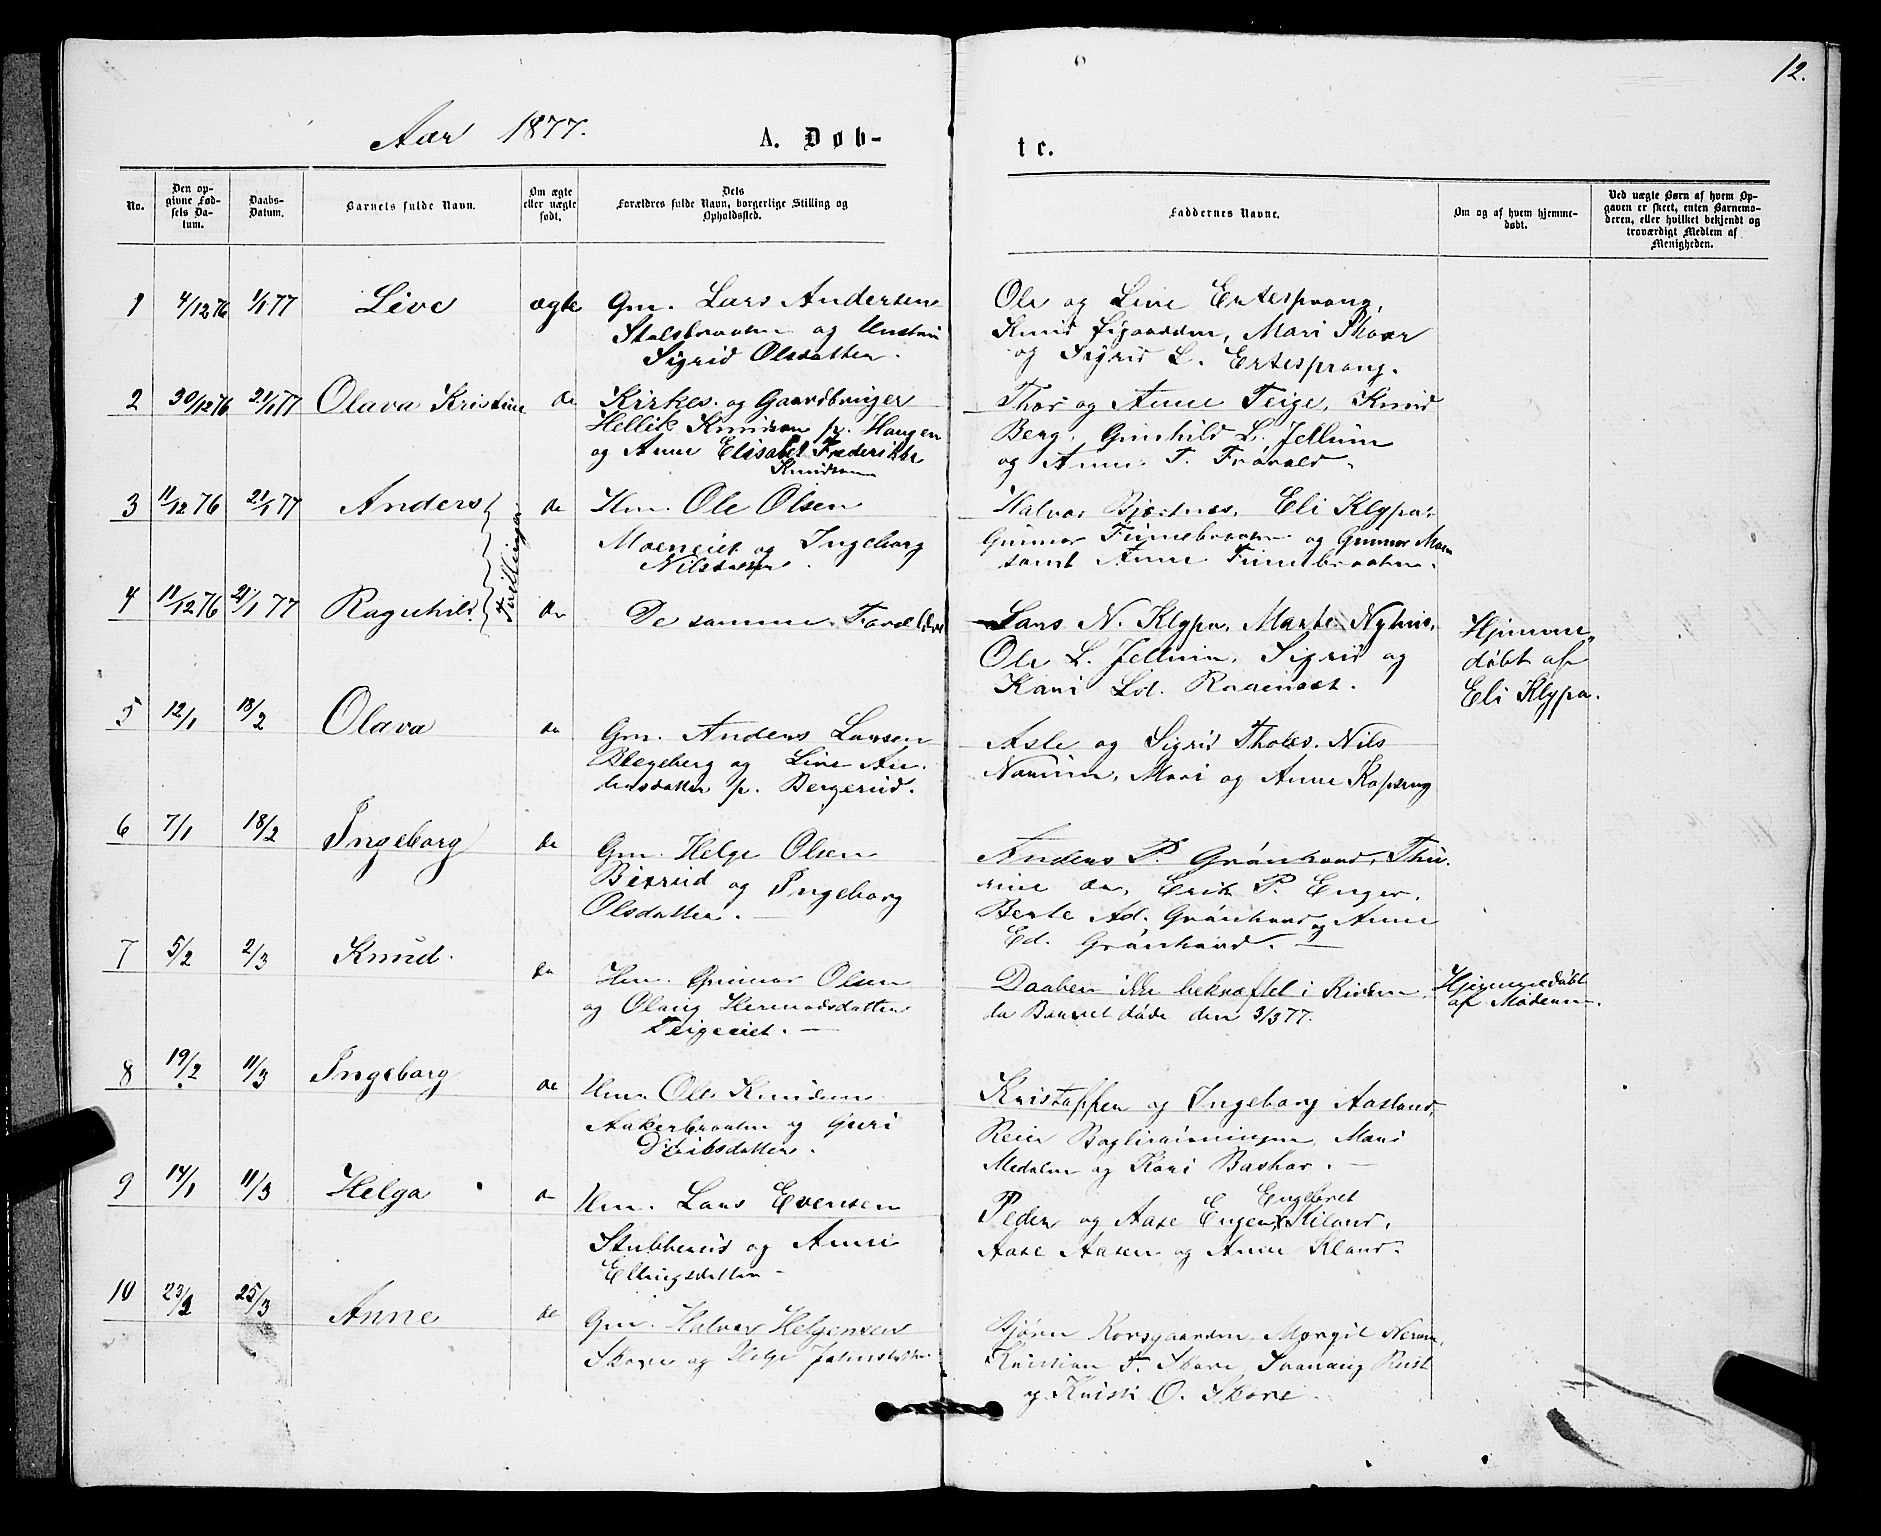 12.
Aar 1877.
A. Døb-
te.
No.
Den op-
givne Fød-
sels Da-
tum.
Daabs-
Datum.
Barnets fulde Navn.
Om ægte
eller uægte
født.
Dets
Forældres fulde Navn, borgerlige Stilling og
Opholdssted.
Faddernes Navne.
Om og af hvem hjemme-
døbt.
Ved uægte Børn af hvem Op-
gaven er skeet, enten Barnemo-
deren, eller hvilket bekjendt og
troværdigt Medlem af
Menigheden.
1 4/12 76 1/1 77 Live ægte Gm. Lars Andersen
Stalsbraaten og Hustru
Sigrid Olsdatter.
Ole og Live Ertesprang,
Knud, Mari Skare
og Sigrid L. Ertesprang.
2 30/12 76 21/1 77 Olava Kristine do Kirkes. og Gaardbruger
Hellik Knudsen p. Haugen
og Anne Elisabet Frederikke
Knudsen
Thor og Anne Teige, Knud
Berg, Gunhild L. Jellum
og Anne T. Frøvold.
3 11/12 76 21/1 77 Anders do Hm. Ole Olsen
Moeneiet og Ingeborg
Nilsdatter.
Tvillinger
Halvor Bjertnes, Eli Klypa,
Gunnar Finnebraaten og Gunnar Moen
samt Anne Finnebraaten.
4 11/12 76 21/1 77 Ragnhild. do De samme Forældre
Lars N. Klypa, Marte Nyhus,
Ole L. Jellum, Sigrid og
Kari Ld. Raaenset.
Hjemme-
døbt af
Eli Klypa.
5 12/1 18/2 Olava do Gm. Anders Larsen
Blegeberg og Live An-
dersdatter p. Bergerud.
Asle og Sigrid Tholes. Nils
Narum, Mari og Anne Kopseng
6 7/1 18/2 Ingeborg do Gm. Helge Olsen
Bexrud og Ingeborg
Olsdatter.
Anders P. Grønhovd, Thu-
rine do, Erik P. Enger,
Berte Ad. Grønhovd og Anne
Ed. Grønhovd.
7 5/2 2/3 Knud. do Hm. Gunnar Olsen
og Olaug Hermodsdatter
Teigeeiet.
Daaben ikke bekræftet i Kirken,
da Barnet døde den 3/3 77.
Hjemmedøbt
af Moderen.
8 19/2 11/3 Ingeborg do Hm. Ole Knudsen
Aakerbraaten og Guri
Didriksdatter.
Kristoffer og Ingeborg Aasland,
Reier, Mari
Medalen og Kari Baskar.
9 14/1 11/3 Helga do Hm. Lars Evensen
Stubberud og Anne
Ellingsdatter
Peder og Aase Engen, Engebret Kiland,
Aase Aasen og Anne Kland.
10 23/2 25/3 Anne do Gm. Halvor Helgensen
Skare og Helge Johnsdatter
Bjørn Korsgaarden, Margit Neraa,
Kristian T. Skare, Svanaug Rust
og Kristi O. Skare.